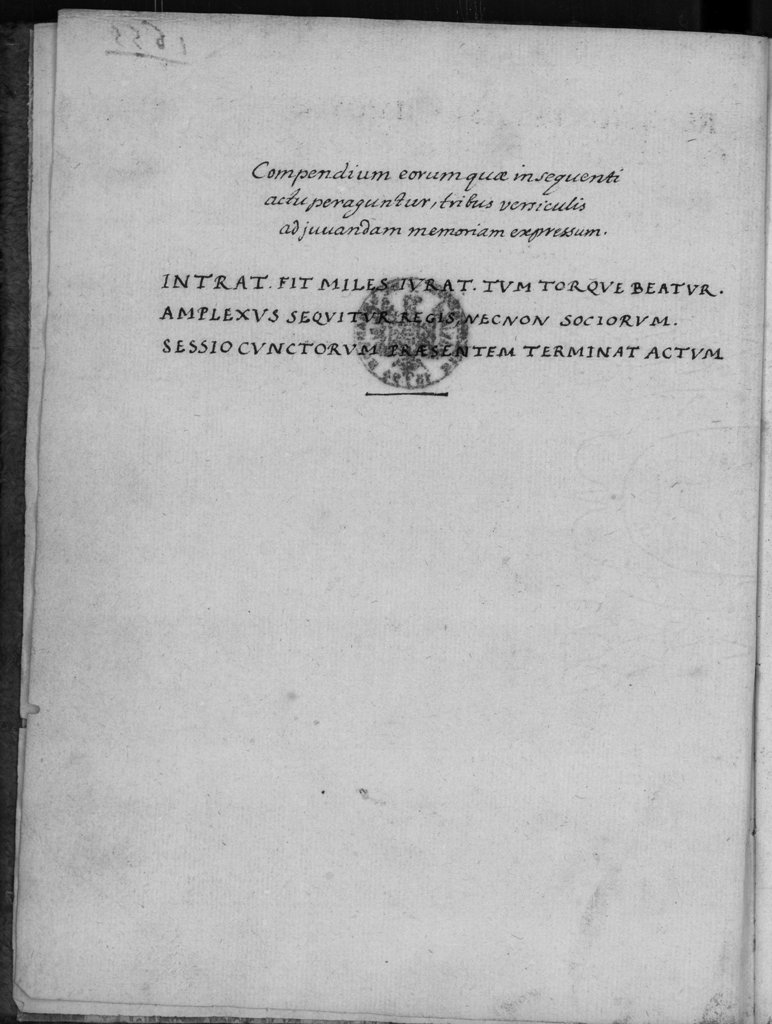 Compendium eorum quæ in sequenti
actu peraguntur, tribus versiculis
adjuvandam memoriam expressum.
INTRAT. FIT MILES. IVRAT. TVM TORQVE BEATVR.
AMPLEXVS SEQVITVR REGIS, NECNON SOCIORVM.
SESSIO CVNCTORVM PRÆSENTEM TERMINAT ACTVM